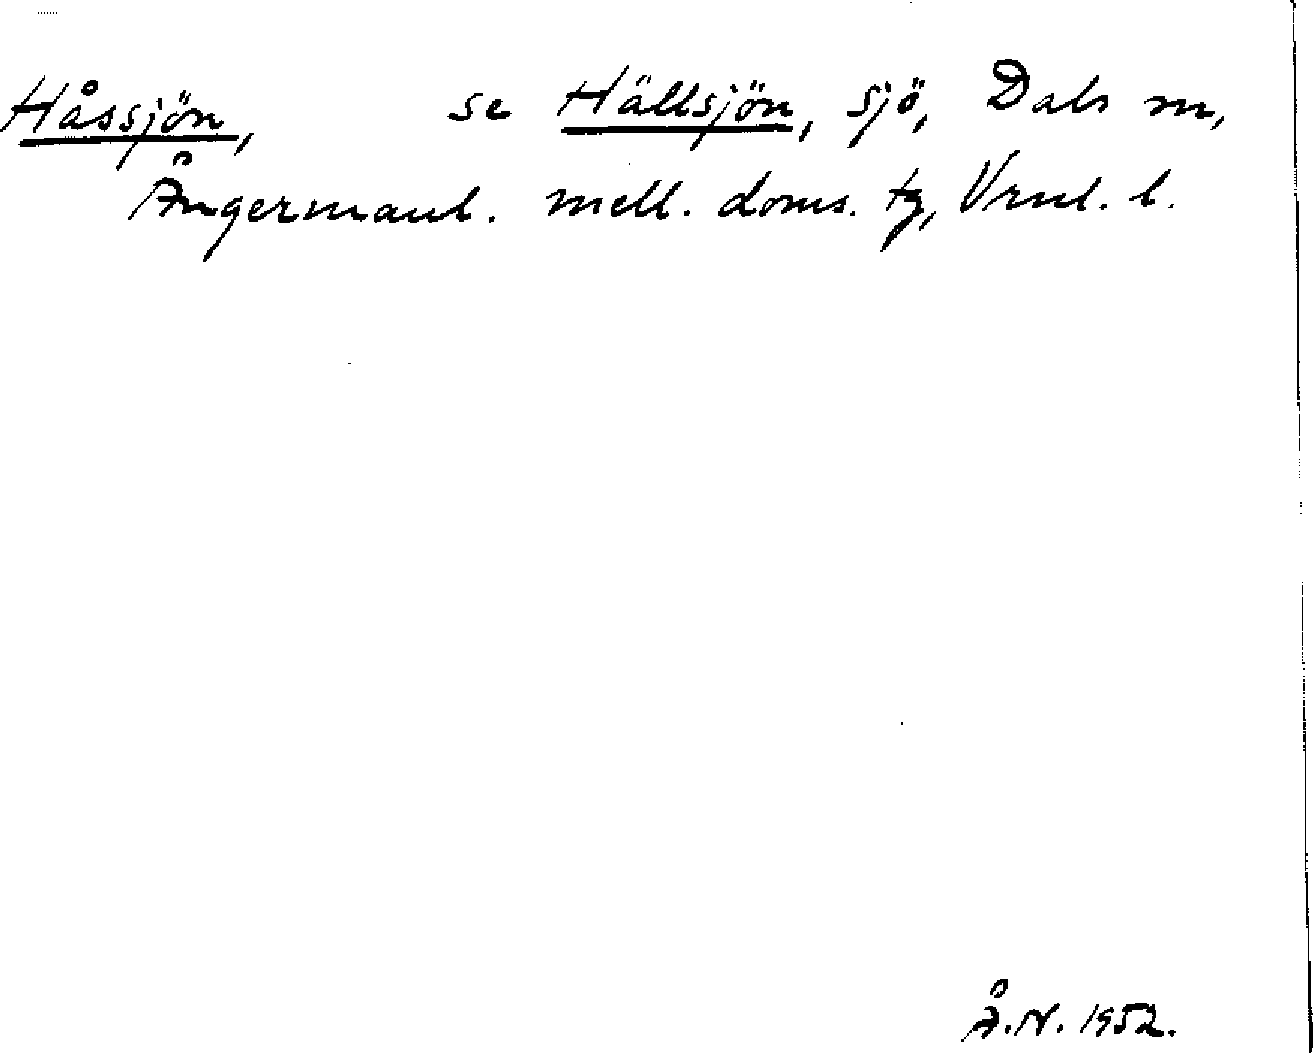 Håssjön, se Hällsjön, sjö, Dals sn,
Ångermanl. mell. doms. tg, Vrnl. l.
Å.N. 1952.